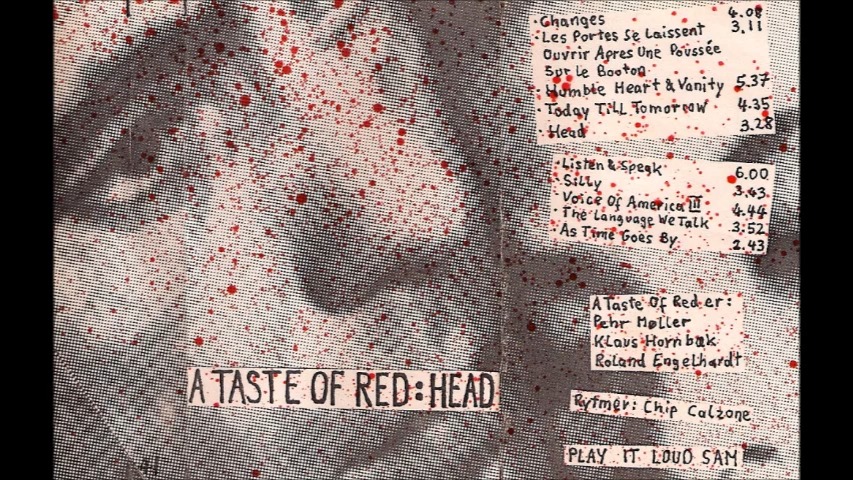 A TASTE OF RED:HEAD
·Changes 4.08
·Les Portes Se Laissent 3.11
Ouvrir Apres Une Poussée
Sur Le Booton
·Humble Heart & Vanity 5.37
·Today Till Tomorrow 4.35
·Head 3.28
·Listen & Speak 6.00
·Silly 3.43
·Voice Of America III 4.44
·The Language We Talk 3.52
·As Time Goes By 2.43
A Taste Of Red er:
Pehr Møller
Klaus Hornbæk
Roland Engelhardt
Rytmer: Chip Calzone
PLAY IT LOUD SAM